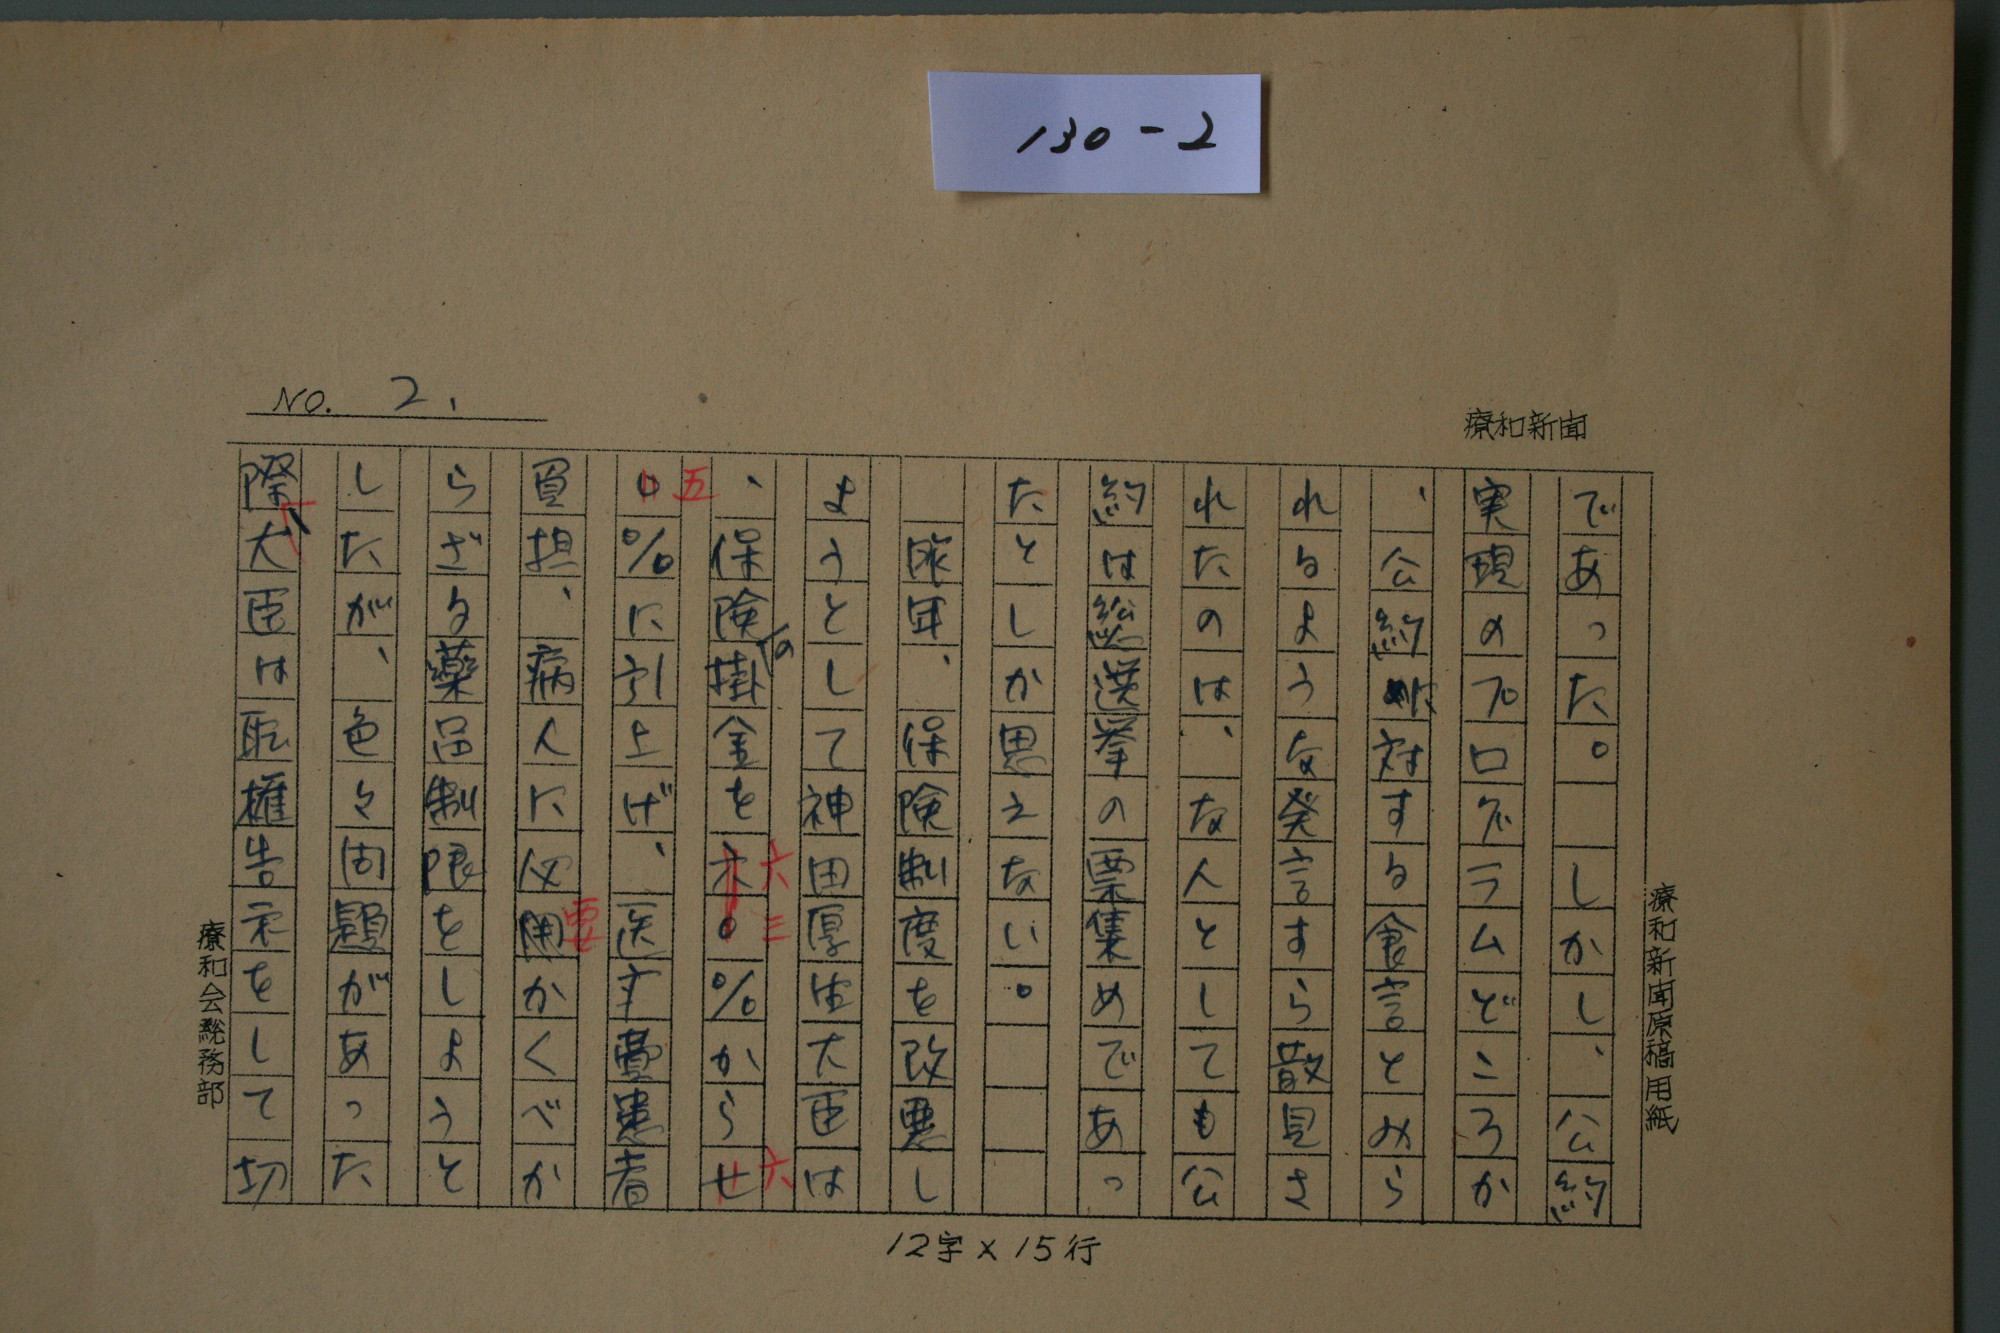 130-2
NO. 2.
療和新聞
であった。 しかし、公約
実現のプログラムどころか
、公約に対する食言とみら
れるような発言すら散見さ
れたのは、な人としても公
約は総選挙の票集めであっ
たとしか思えない。
昨年、保険制度を改悪し
ようとして神田厚生大臣は
、保険の掛金を六三%から六
五%に引上げ、医療費患者
負担、病人に必要かくべか
らざる薬品制限をしようと
したが、色々問題があった
際大臣は職権告示をして切
療和新聞原稿用紙
療和会総務部
12字×15行